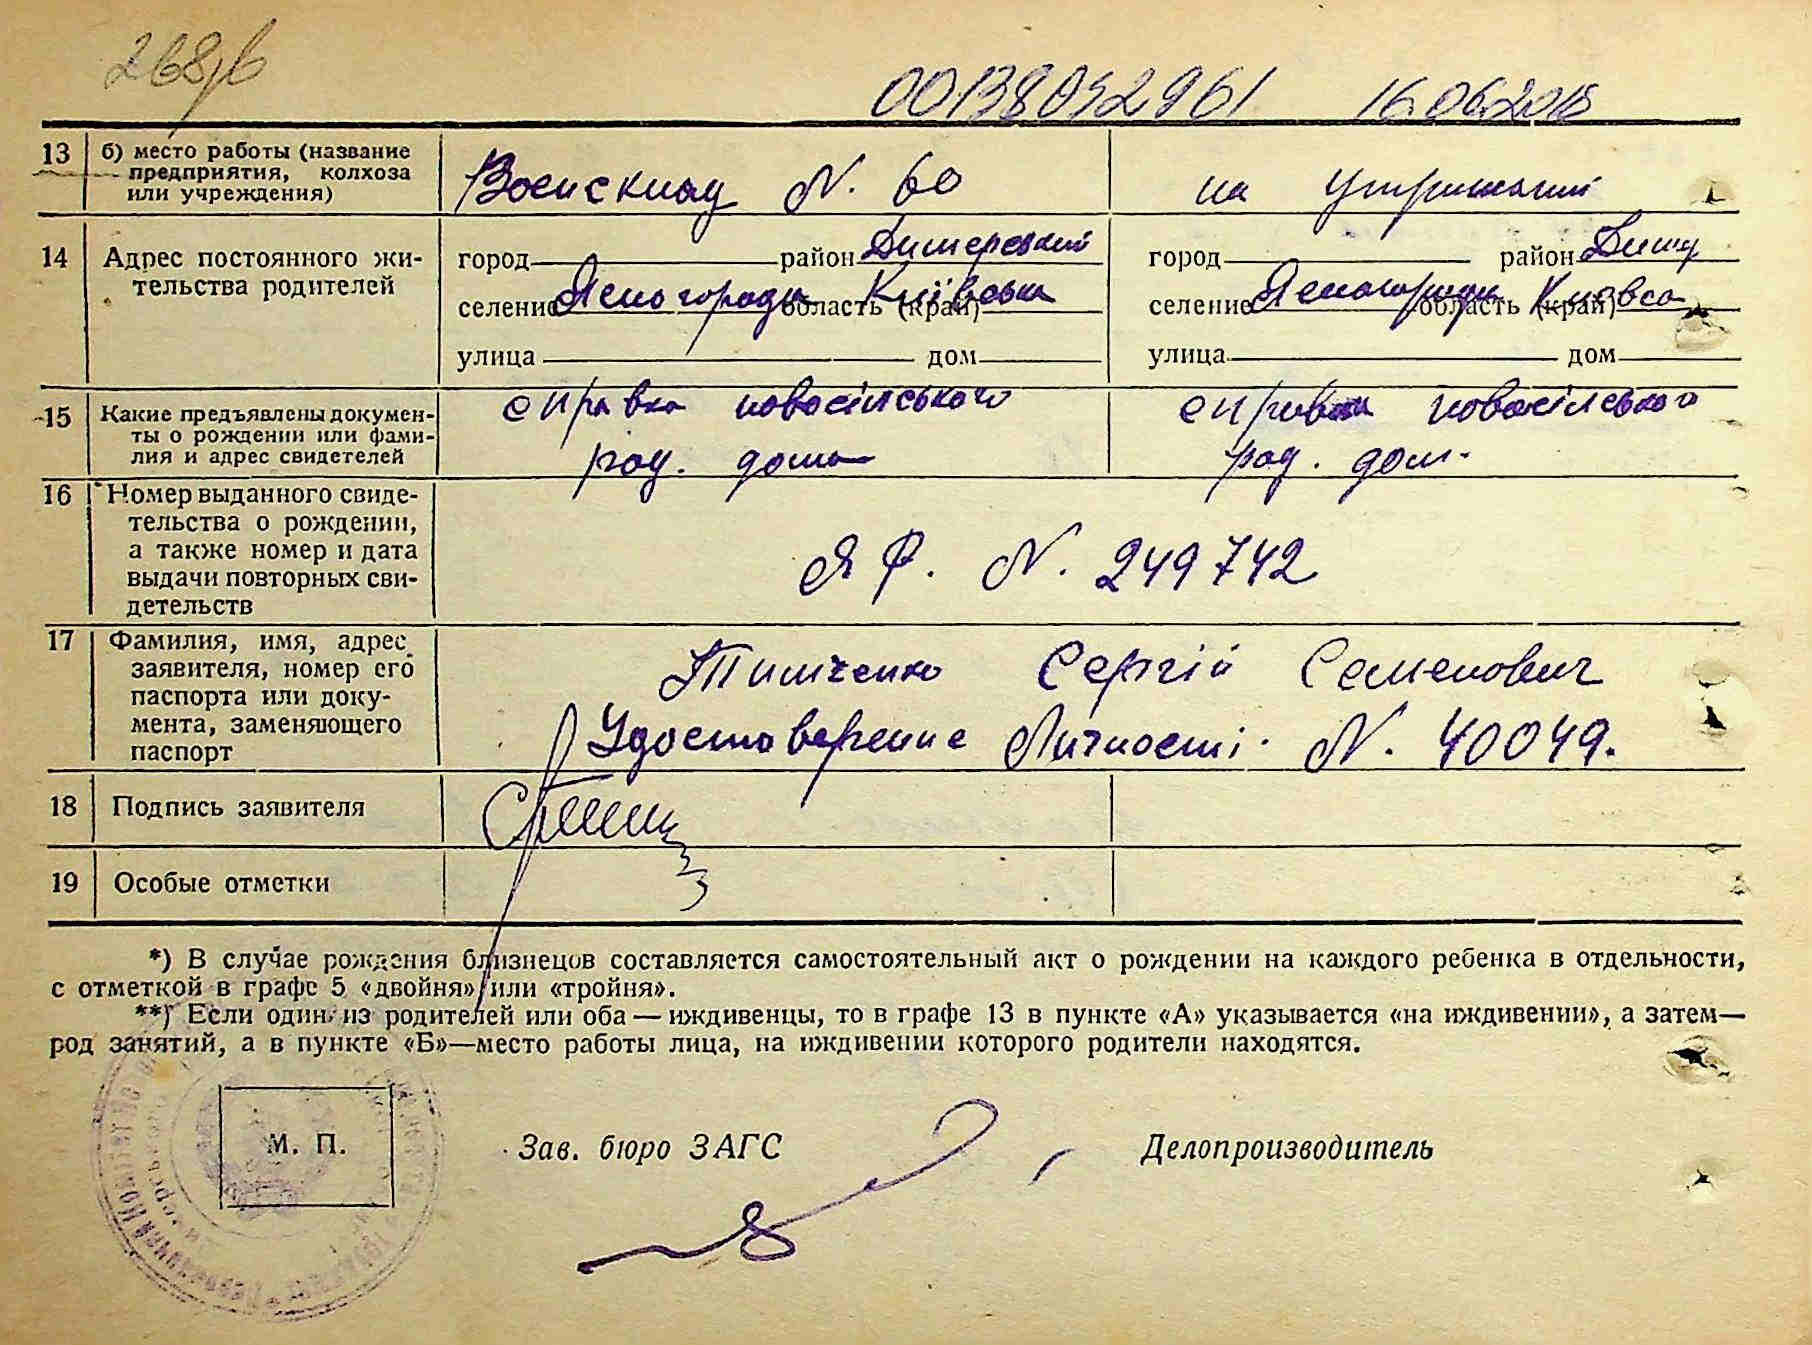 268/в
00138052961 16.06.2018
13 б) место работы (название
предприятия, колхоза
или учреждения)
N. 60
на утриманні
14 Адрес постоянного жи-
тельства родителей
город район Димерський
селение Ясногородка область (край) Київська
улица дом
город район Димер
селение Ясногородка область (край)
улица дом
15 Какие предъявлены докумен-
ты о рождении или фами-
лия и адрес свидетелей
справка новосілського
род. дома
справка новосілського
род. дом.
16 Номер выданного свиде-
тельства о рождении,
а также номер и дата
выдачи повторных сви-
детельств
ЯФ. N. 249742
17 Фамилия, имя, адрес
заявителя, номер его
паспорта или доку-
мента, заменяющего
паспорт
Тимченко Сергій Семенович
Удостоверение Личності. N. 40049.
18 Подпись заявителя
19 Особые отметки
*) В случае рождения близнецов составляется самостоятельный акт о рождении на каждого ребенка в отдельности,
с отметкой в графе 5 «двойня» или «тройня».
**) Если один из родителей или оба — иждивенцы, то в графе 13 в пункте «А» указывается «на иждивении», а затем—
род занятий, а в пункте «Б»—место работы лица, на иждивении которого родители находятся.
М. П.
Зав. бюро ЗАГС
Делопроизводитель